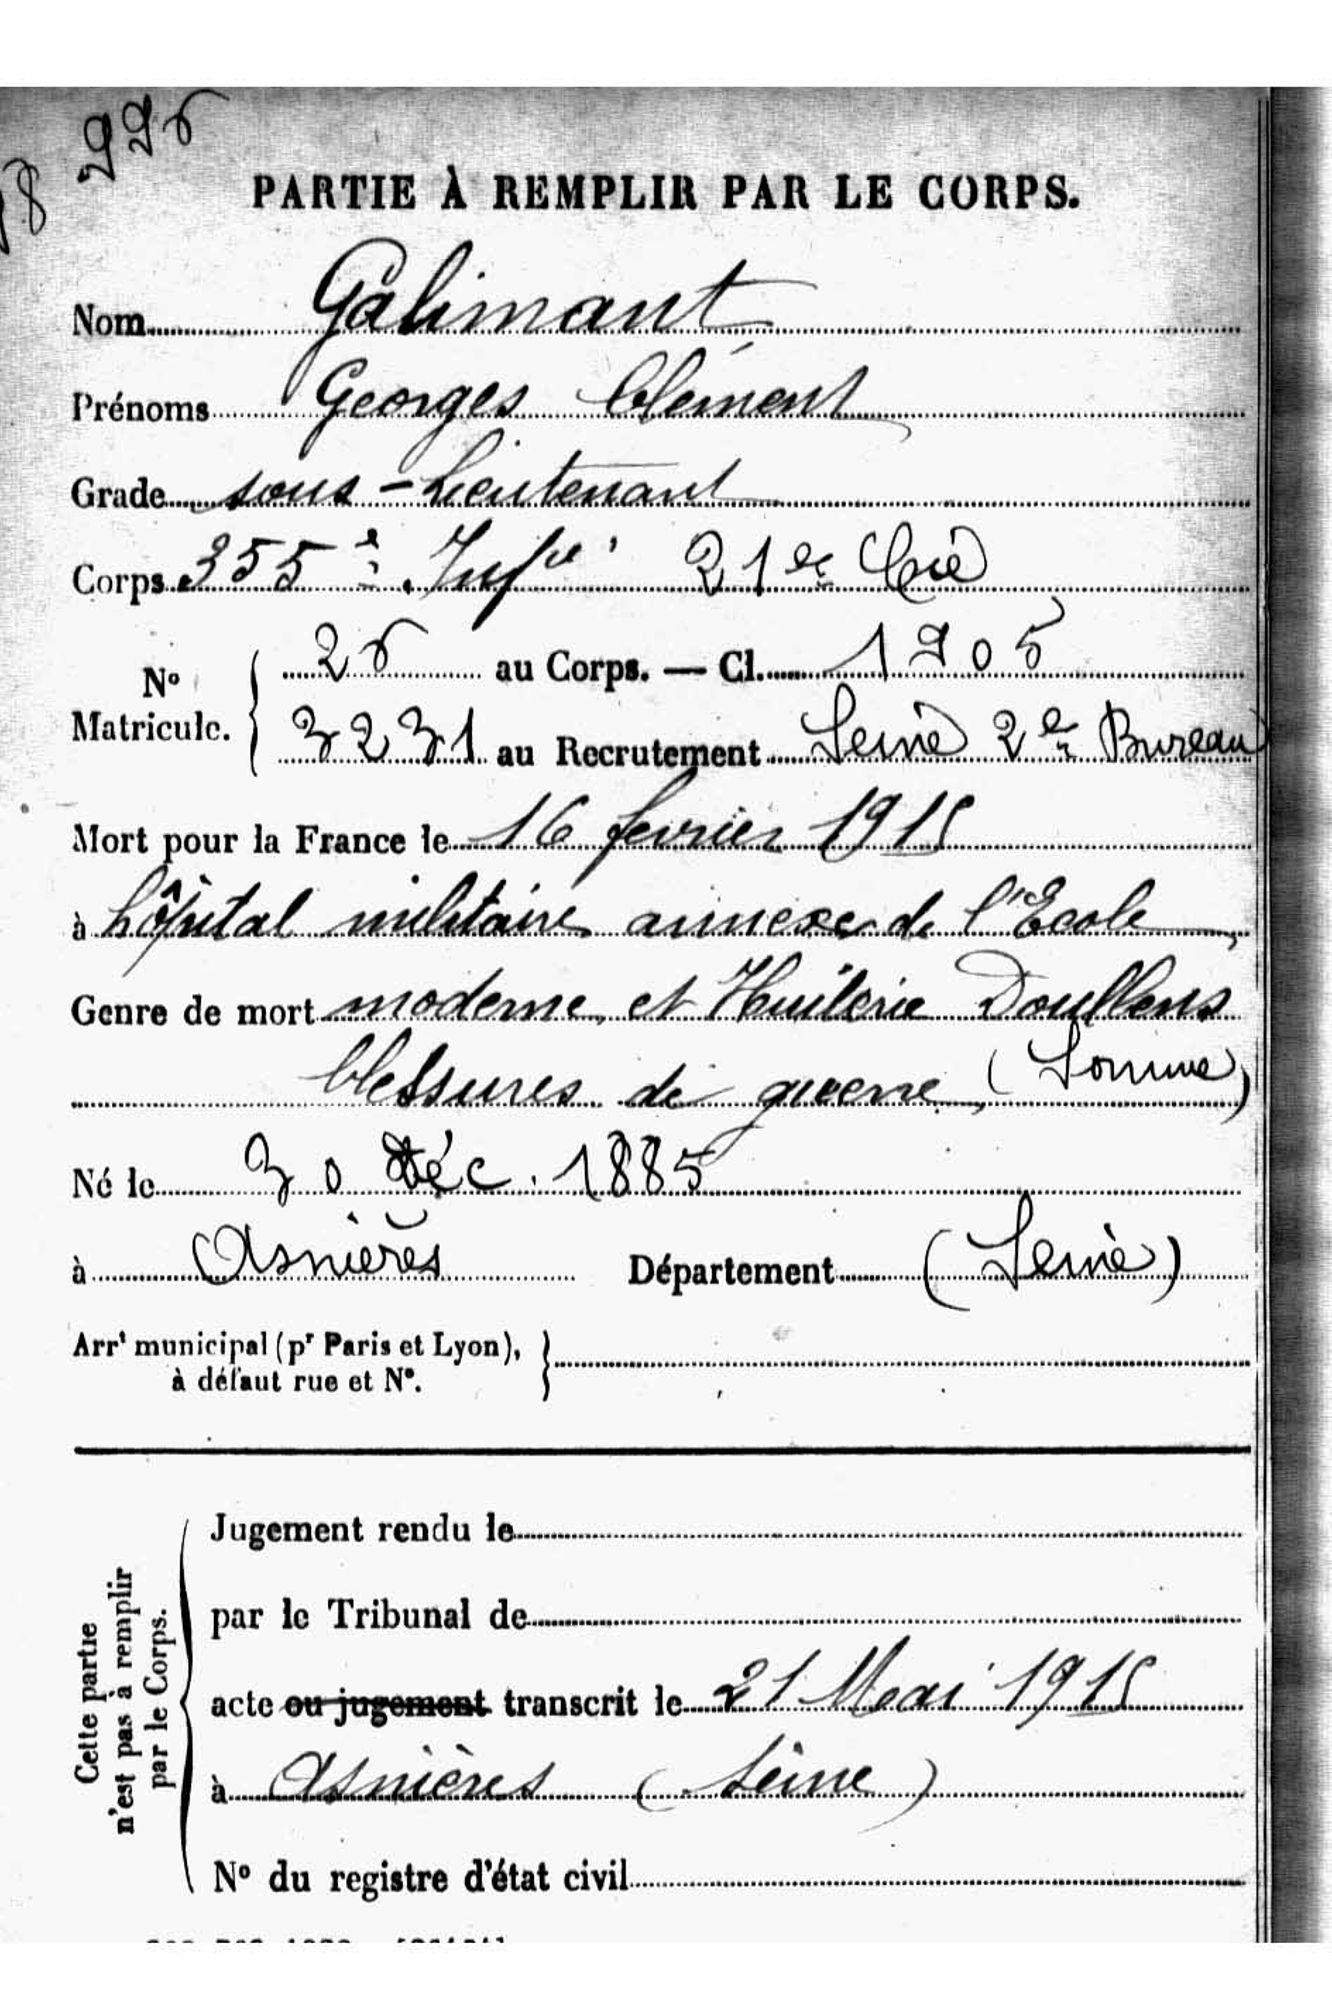 996
8
PARTIE À REMPLIR PAR LE CORPS.
Nom Galimant
Prénoms Georges Clément
Grade sous-lieutenant
Corps 355e Infie 21e Cie
No Matricule. 26 au Corps. — Cl. 1905
3231 au Recrutement Seine 2e Bureau
Mort pour la France le 16 fevrier 1915
à hôpital militaire annexe de l'Ecole
Genre de mort moderne et Huilerie Doullens
blessures de guerre (Somme)
Né le 30 Déc. 1885
à Asnières Département (Seine)
Arrt municipal (pr Paris et Lyon),
à défaut rue et N°.
Cette partie
n'est pas à remplir
par le Corps.
Jugement rendu le
par le Tribunal de
acte ou jugement transcrit le 21 Mai 1915
à Asnières (Seine)
No du registre d'état civil